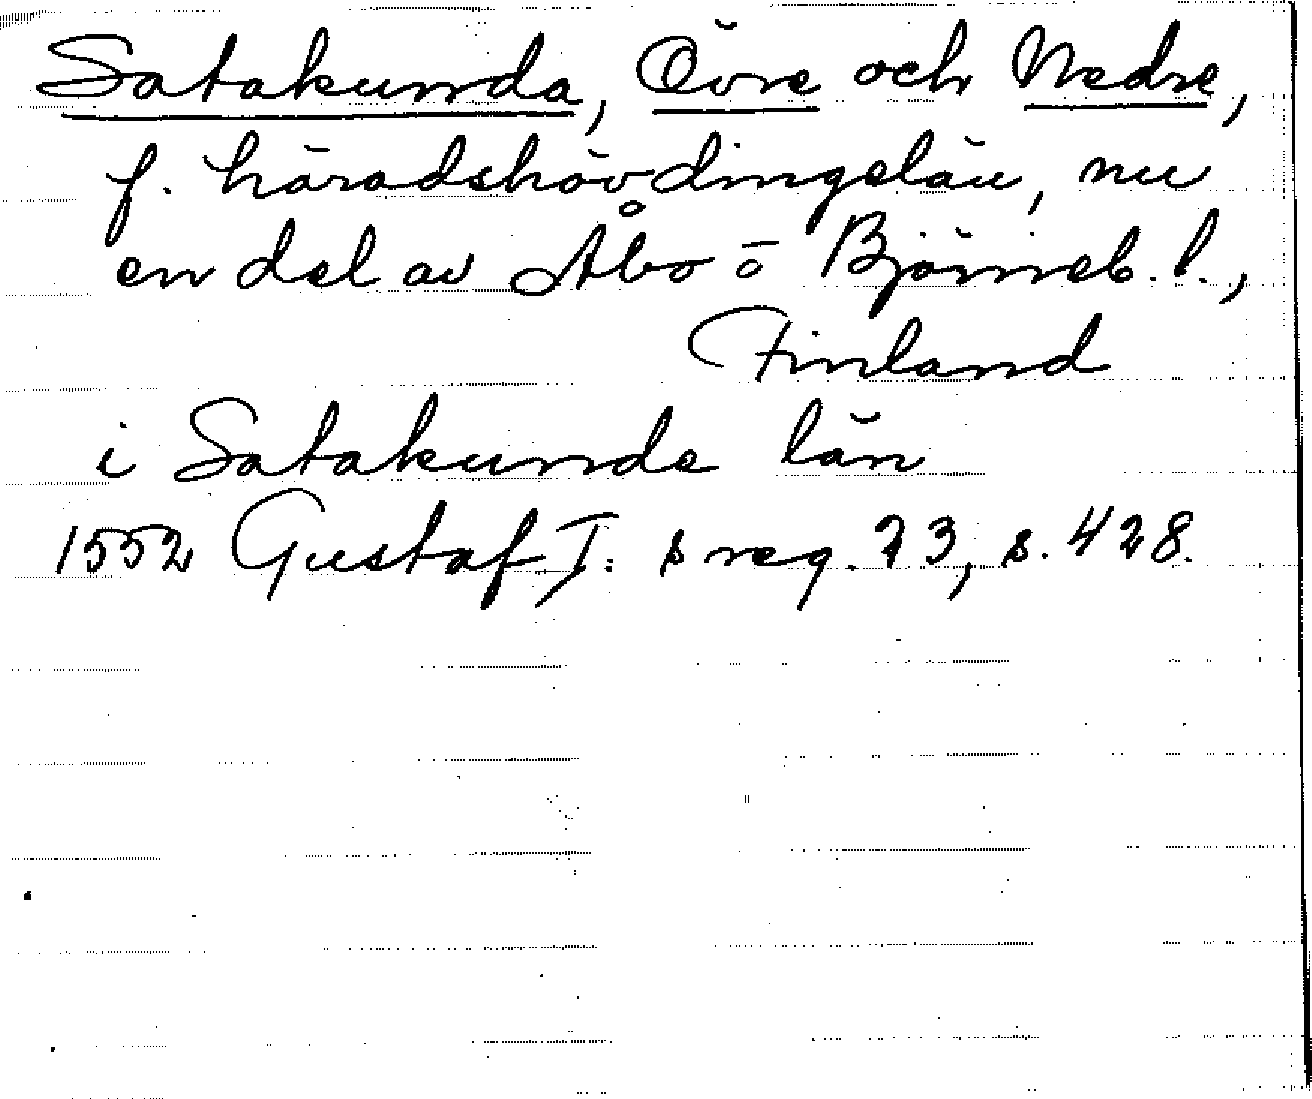 Satakunda, Övre och Nedre,
f. häradshövdingelän, nu
en del av Åbo o Björneb. l.,
Finland
i Satakunde län
1552 Gustaf I:s reg. 23, s. 428.